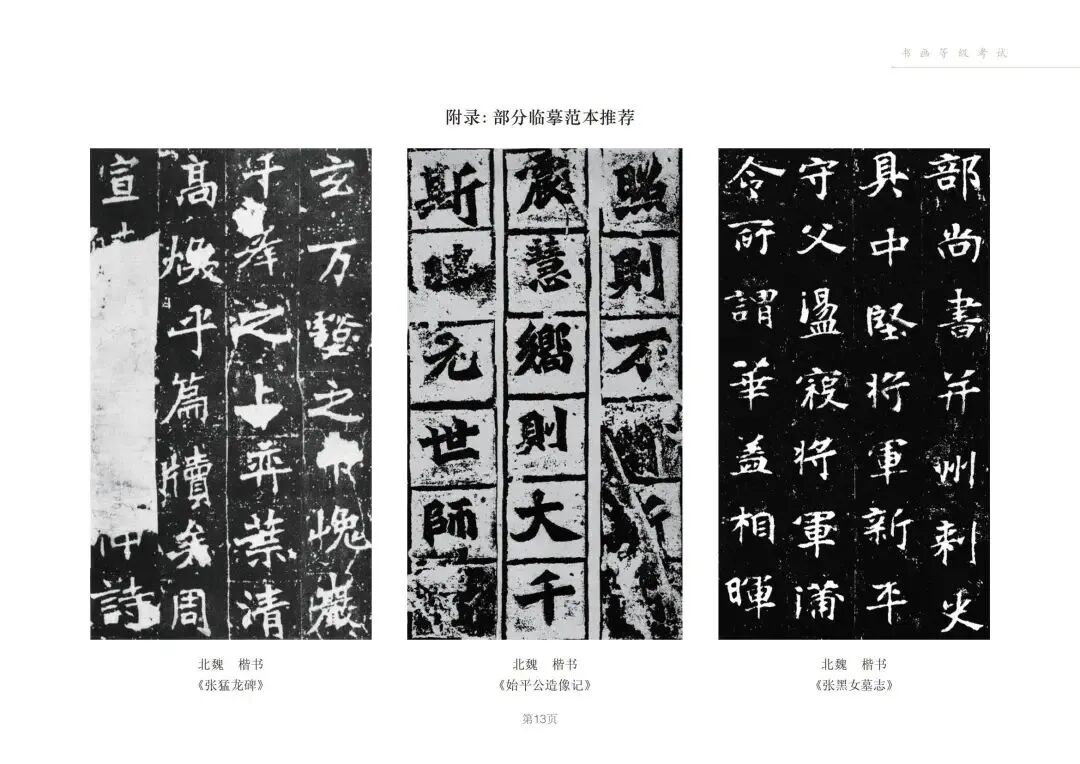 书画等级考试
附录：部分临摹范本推荐
玄万壑之峗巖
千峯之上弈葉清
高煥乎篇牘矣周
宣仲詩
照則不斯
震慧嚮則大千
斯元世師
部尚書并州刾史
具中堅将軍新平
守父盪寇将軍蒲
令所謂華盖相暉
北魏 楷书
《张猛龙碑》
北魏 楷书
《始平公造像记》
北魏 楷书
《张黑女墓志》
第13页